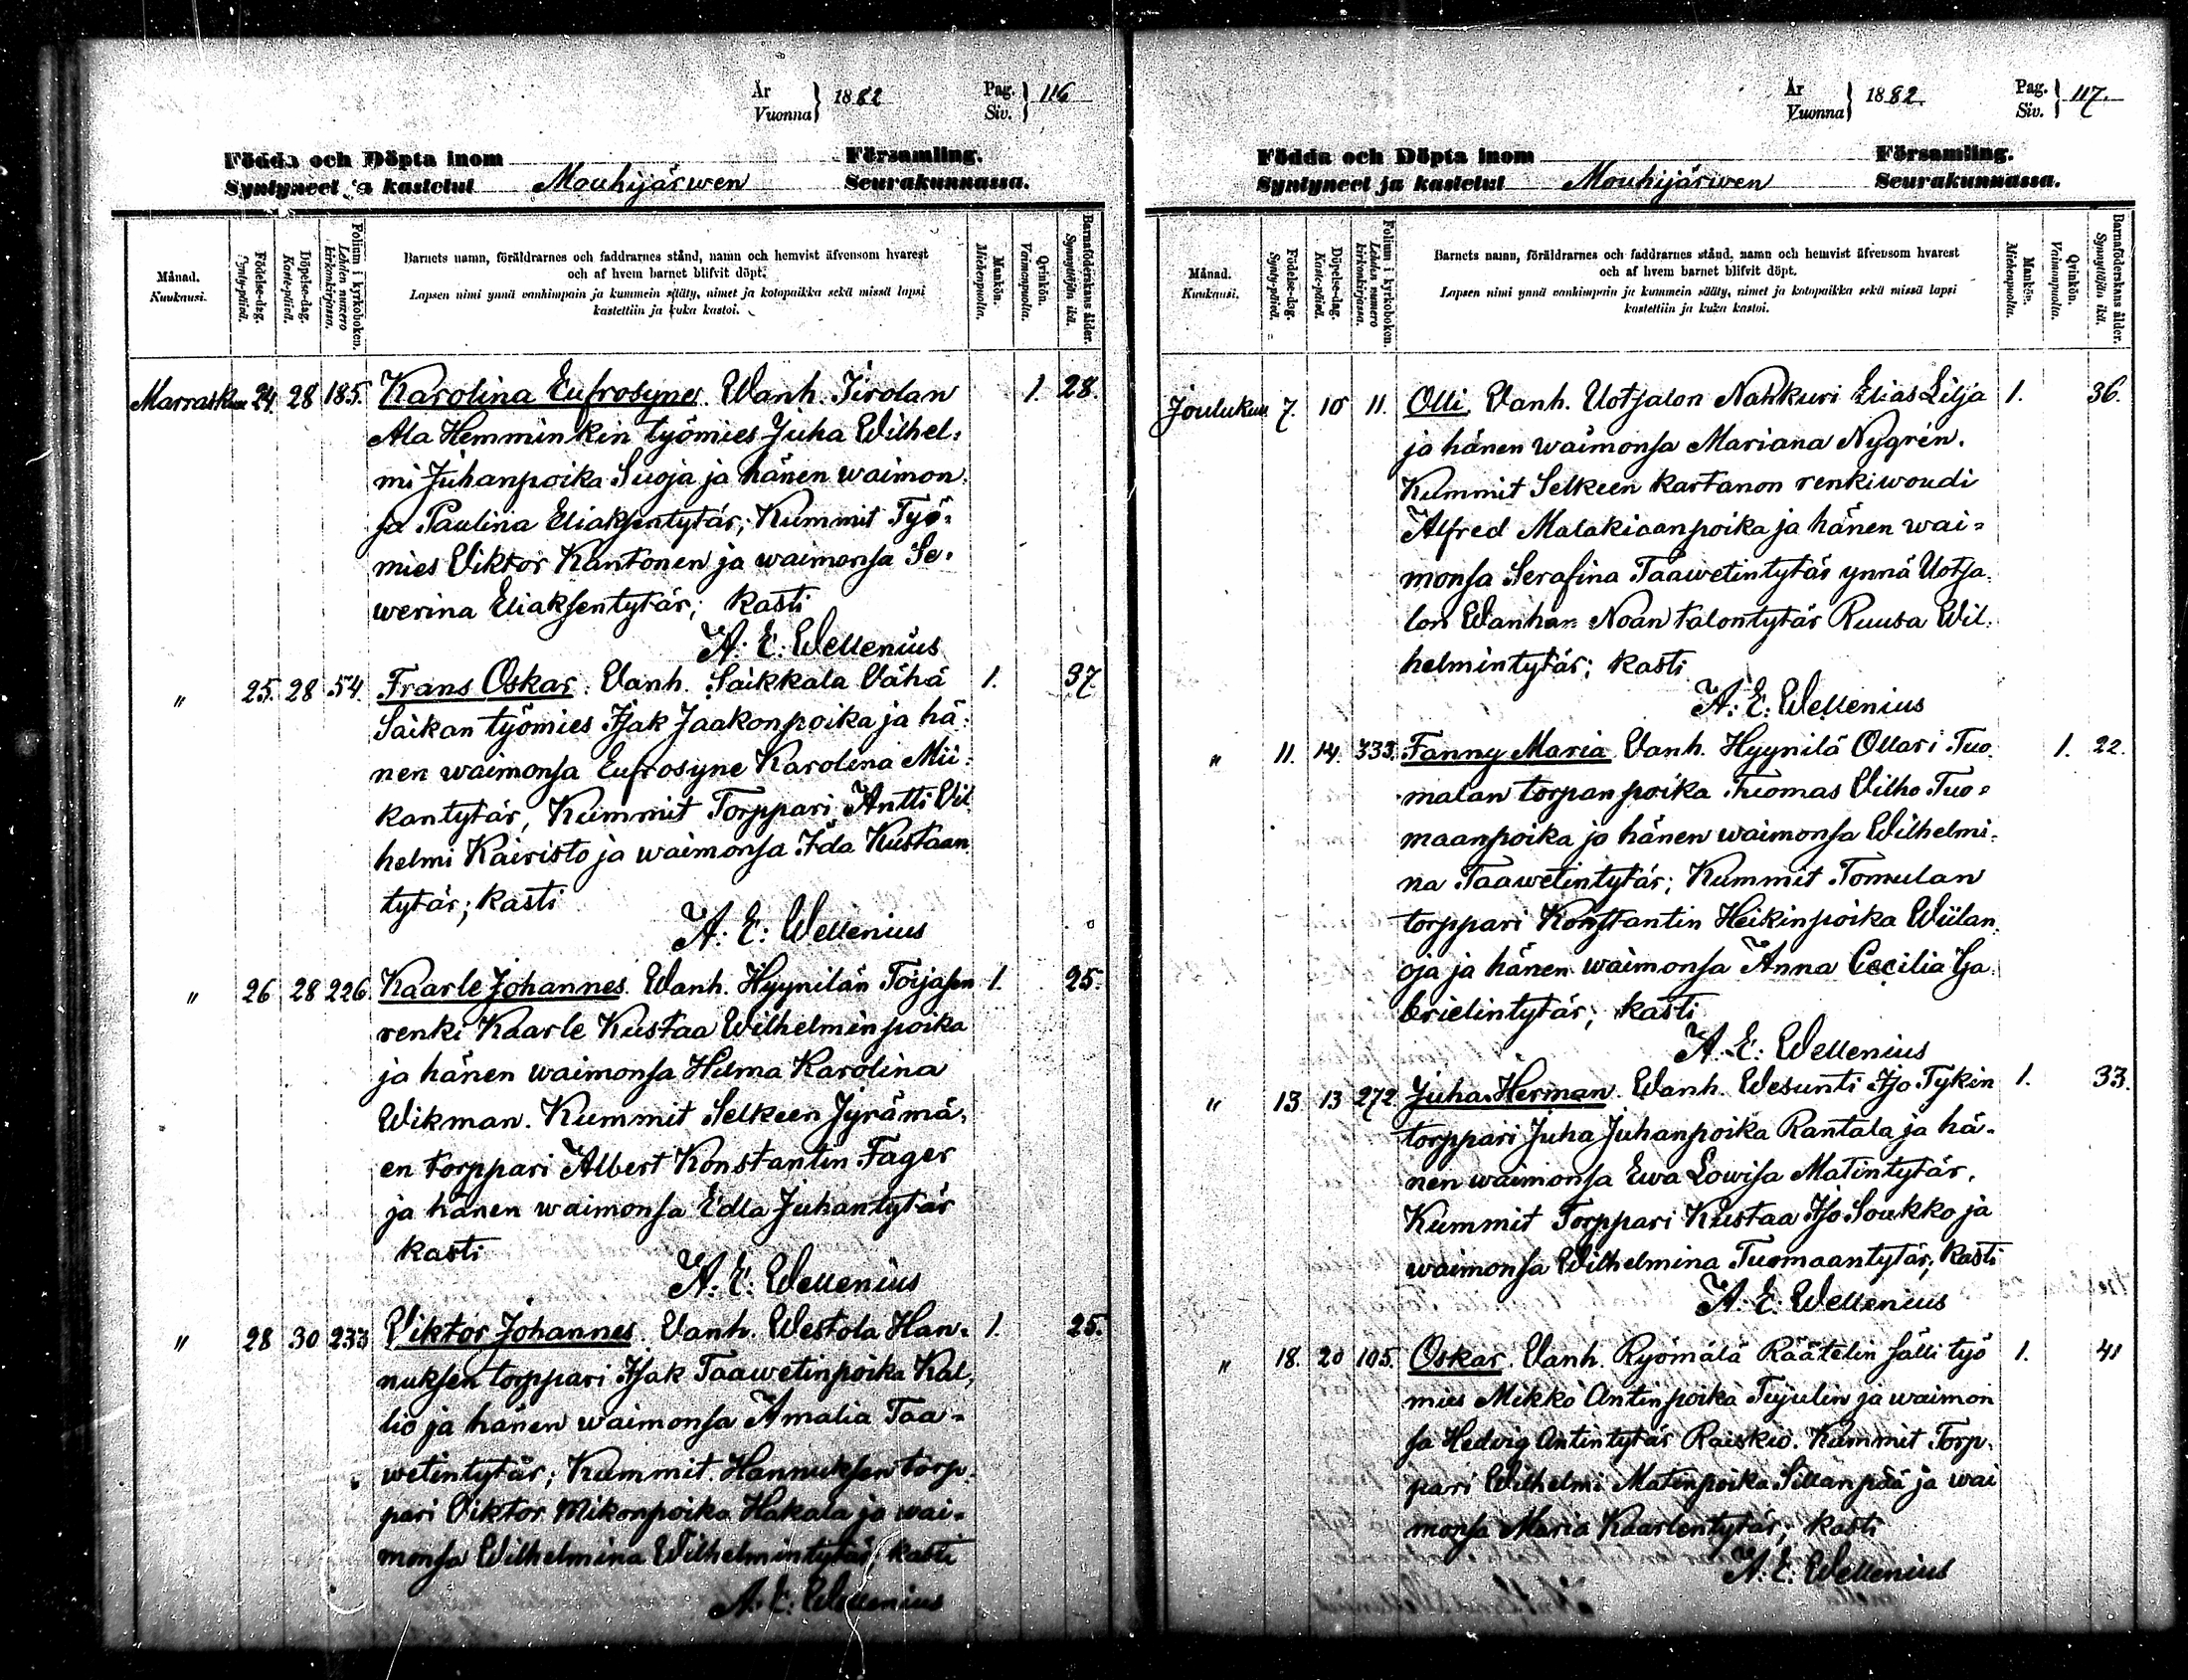 År
Vuonna } 1882
Pag.
Siv. } 116
Födda och Döpta inom Församling.
Syntyneet ja kastetut Mouhijärwen Seurakunnassa.
Månad.
Kuukausi.
Födelse-dag.
Synty-päivä.
Döpelse-dag.
Kaste-päivä.
Folium i kyrkoboken.
Lehden numero
kirkonkirjassa.
Barnets namn, föräldrarnes och faddrarnes stånd, namn och hemvist äfvensom hvarest
och af hvem barnet blifvit döpt.
Lapsen nimi ynnä vanhimpain ja kummein sääty, nimet ja kotopaikka sekä missä lapsi
kastettiin ja kuka kastoi.
Mankön.
Miehenpuolia.
Qvinkön.
Vaimonpuolia.
Barnaföderskans ålder.
Synnyttäjän ikä.
Marraskuu 24. 28 185. Karolina Eufrosyne. Wanh. Tirolan 1. 28.
Ala Hemminkin työmies Juha Wilhel-
mi Juhanpoika Suoja ja hänen waimon-
sa Paulina Eliaksentytär; Kummit Työ-
mies Viktor Kantonen ja waimonsa Se-
werina Eliaksentytär; kasti
A. E. Wellenius
" 25. 28 54. Frans Oskar. Vanh. Saikkala Vähä 1. 37.
Saikan työmies Isak Jaakonpoika ja hä-
nen waimonsa Eufrosyne Karolina Mii-
kantytär, Kummit Torppari Antti Vil-
helmi Kairisto ja waimonsa Ida Kustaan-
tytär; kasti
A. E. Wellenius
" 26 28 226. Kaarle Johannes. Wanh. Hyynilän Toijasen 1. 25.
renki Kaarle Kustaa Wilhelminpoika
ja hänen waimonsa Hilma Karolina
Wikman. Kummit Selkeen Jyrämä-
en torppari Albert Konstantin Fager
ja hänen waimonsa Edla Juhantytär
kasti
A. E. Wellenius
" 28 30 233 Viktor Johannes. Vanh. Westola Han- 1. 25.
nuksen torppari Isak Taawetinpoika Kal-
lio ja hänen waimonsa Amalia Taa-
wetintytär; Kummit Hannuksen torp-
pari Viktor Mikonpoika Hakala ja wai-
monsa Wilhelmina Wilhelmintytär; kasti
A. E. Wellenius
År
Vuonna } 1882.
Pag.
Siv. } 117.
Födda och Döpta inom Församling.
Syntyneet ja kastetut Mouhijärwen Seurakunnassa.
Månad.
Kuukausi.
Födelse-dag.
Synty-päivä.
Döpelse-dag.
Kaste-päivä.
Folium i kyrkoboken.
Lehden numero
kirkonkirjassa.
Barnets namn, föräldrarnes och faddrarnes stånd, namn och hemvist äfvensom hvarest
och af hvem barnet blifvit döpt.
Lapsen nimi ynnä vanhimpain ja kummein sääty, nimet ja kotopaikka sekä missä lapsi
kastettiin ja kuka kastoi.
Mankön.
Miehenpuolia.
Qvinkön.
Vaimonpuolia.
Barnaföderskans ålder.
Synnyttäjän ikä.
Joulukuu 7. 10 11. Olli. Vanh. Uotsalon Nahkuri Elias Lilja 1. 36.
ja hänen waimonsa Mariana Nygrén.
Kummit Selkeen kartanon renkiwouti
Alfred Malakiaanpoika ja hänen wai-
monsa Serafina Taawetintytär ynnä Uotsa-
lon Wanhan Noan talontytär Ruusa Wil-
helmintytär; kasti
A. E. Wellenius
" 11. 14. 333. Fanny Maria. Vanh. Hyynilä Ollari Tuo- 1. 22.
malan torpanpoika Tuomas Vilho Tuo-
maanpoika ja hänen waimonsa Wilhelmi-
na Taawetintytär; Kummit Tomulan
torppari Konstantin Heikinpoika Wiilan-
oja ja hänen waimonsa Anna Cecilia Ga-
brielintytär; kasti
A. E. Wellenius
" 13. 13 272. Juha Herman. Wanh. Wesunti Iso Tykin 1. 33.
torppari Juha Juhanpoika Rantala ja hä-
nen waimonsa Ewa Lowisa Matintytär.
Kummit Torppari Kustaa Iso Soukko ja
waimonsa Wilhelmina Tuomaantytär; kasti
A. E. Wellenius
" 18. 20 105. Oskar. Vanh. Ryömälä Räätälin sälli työ 1. 41
mies Mikko Antinpoika Tujulin ja waimon
sa Hedvig Antintytär Raiskio. Kummit Torp-
pari Wilhelmi Matinpoika Sillanpää ja wai
monsa Maria Kaarlentytär; kasti
A. E. Wellenius